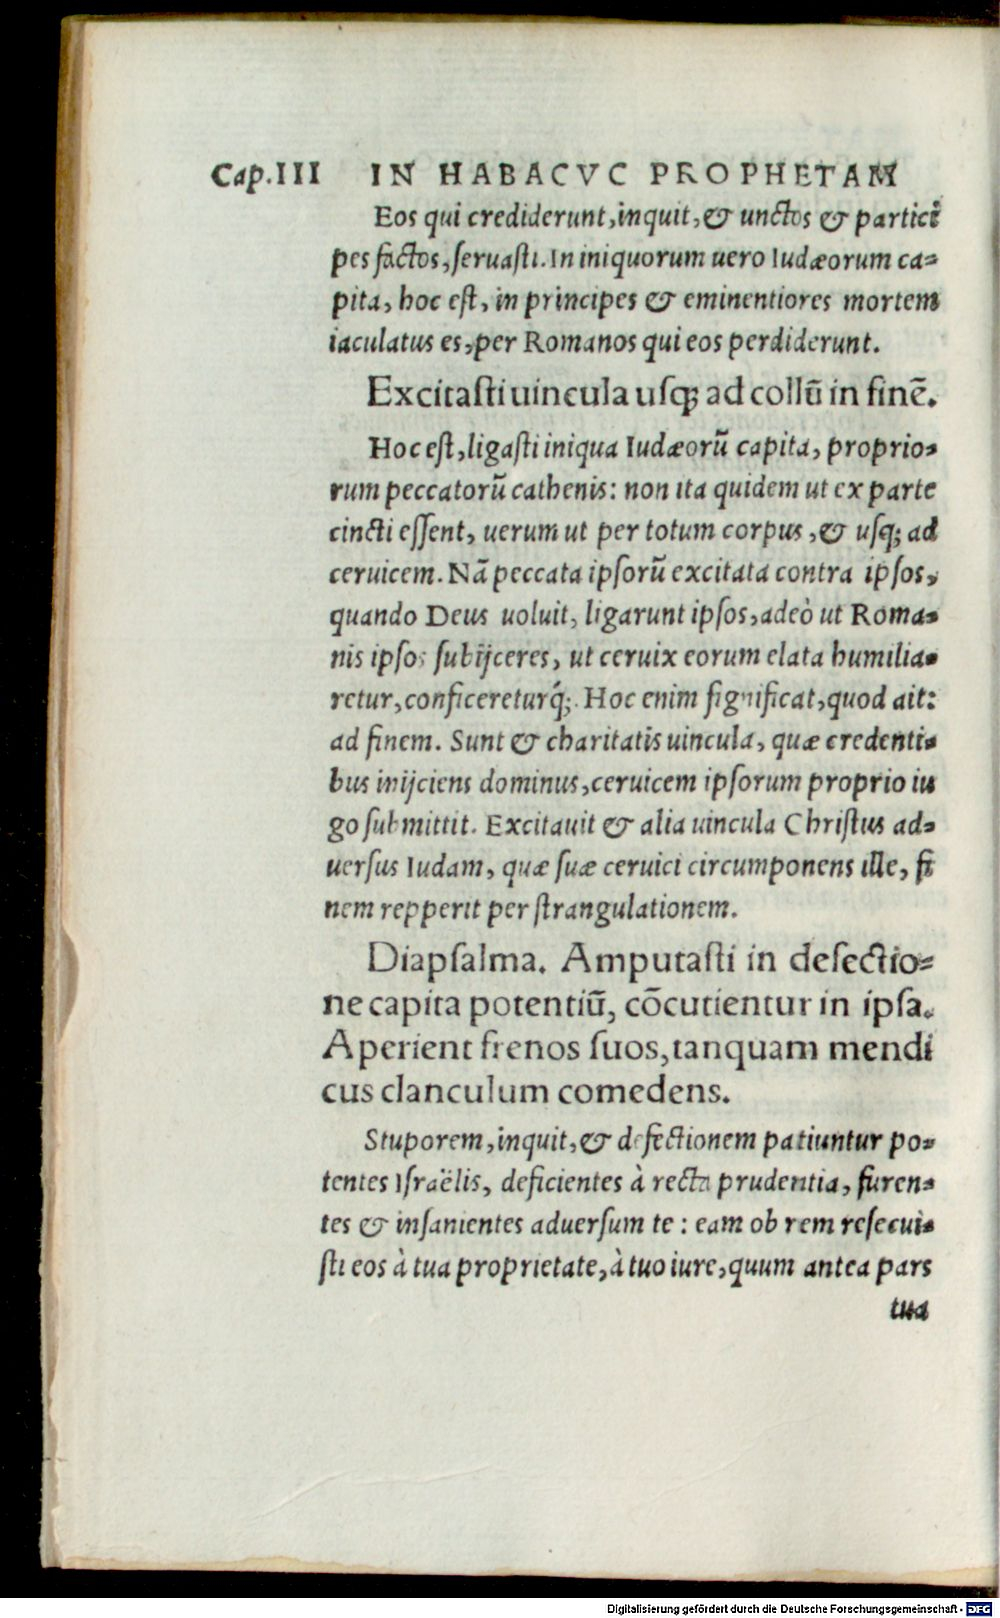 Cap.III IN HABACVC PROPHETAM
Eos qui crediderunt, inquit, & unctos & partici
pes factos, ſeruaſti. In iniquorum uero Iudæorum ca-
pita, hoc eſt, in principes & eminentiores mortem
iaculatus es, per Romanos qui eos perdiderunt.
Excitaſti uincula uſq; ad collū in finē.
Hoc eſt, ligaſti iniqua Iudæorū capita, proprio-
rum peccatorū cathenis: non ita quidem ut ex parte
cincti eſſent, uerum ut per totum corpus, & uſq; ad
ceruicem. Nā peccata ipſorū excitata contra ipſos,
quando Deus uoluit, ligarunt ipſos, adeò ut Roma-
nis ipſos ſubijceres, ut ceruix eorum elata humilia-
retur, conficereturq́;. Hoc enim ſignificat, quod ait:
ad finem. Sunt & charitatis uincula, quæ credenti-
bus inijciens dominus, ceruicem ipſorum proprio iu
go ſubmittit. Excitauit & alia uincula Chriſtus ad-
uerſus Iudam, quæ ſuæ ceruici circumponens ille, fi
nem repperit per ſtrangulationem.
Diapſalma. Amputaſti in defectio-
ne capita potentiū, cōcutientur in ipſa.
Aperient frenos ſuos, tanquam mendi
cus clanculum comedens.
Stuporem, inquit, & defectionem patiuntur po-
tentes Iſraëlis, deficientes à recta prudentia, furen-
tes & inſanientes aduerſum te: eam ob rem reſecui-
ſti eos à tua proprietate, à tuo iure, quum antea pars
tua
Digitalisierung gefördert durch die Deutsche Forschungsgemeinschaft - DFG